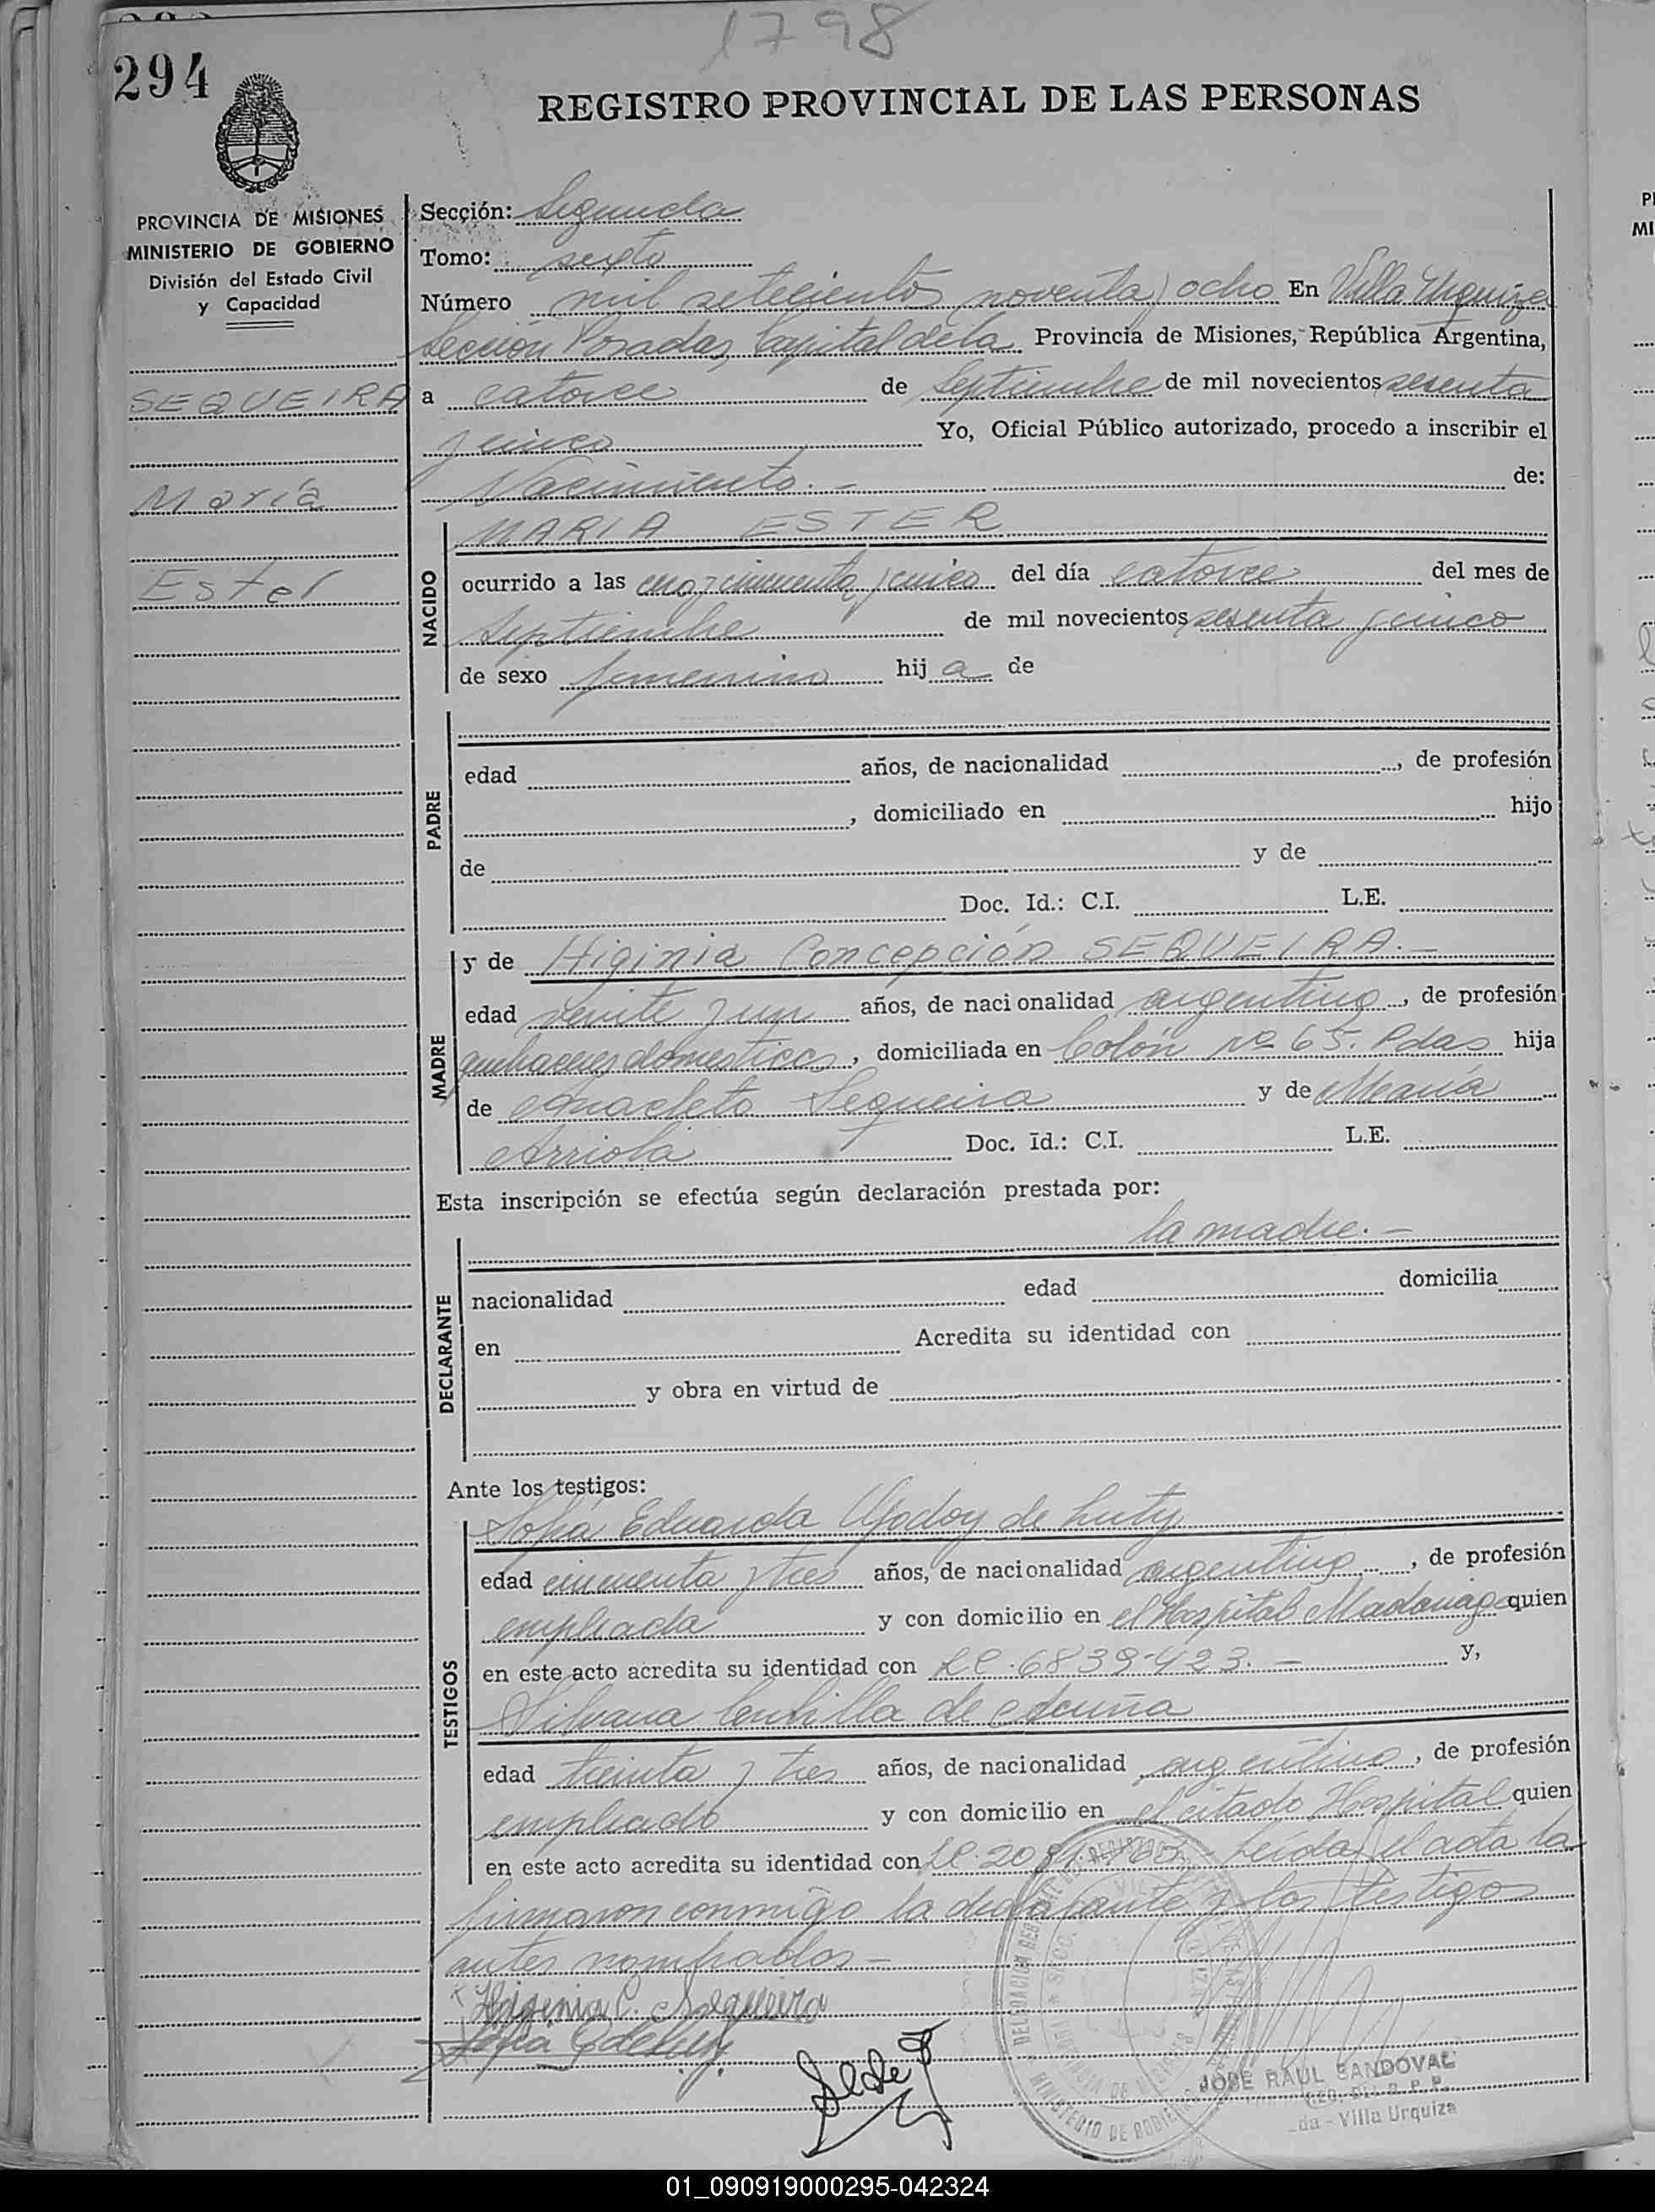 1798
294
REGISTRO PROVINCIAL DE LAS PERSONAS
PROVINCIA DE MISIONES
MINISTERIO DE GOBIERNO
División del Estado Civil
y Capacidad
SEQUEIRA
María
Ester
Sección: Segunda
Tomo: sexto
Número mil setecientos noventa y ocho En Villa Urquiza
Sección Posadas, Capital de la Provincia de Misiones, República Argentina,
a catorce de Septiembre de mil novecientos sesenta
y cinco Yo, Oficial Público autorizado, procedo a inscribir el
Nacimiento.- de:
NACIDO
MARIA ESTER
ocurrido a las del día catorce del mes de
Septiembre de mil novecientos sesenta y cinco
de sexo femenino hij a de
PADRE
edad años, de nacionalidad , de profesión
, domiciliado en hijo
de y de
Doc. Id.: C.I. L.E.
MADRE
y de Higinia Concepción SEQUEIRA.-
edad veinte y un años, de nacionalidad argentina, de profesión
quehaceres domesticos, domiciliada en Colón Nº 65. Pdas hija
de Anacleto Sequeira y de María
Arriola Doc. Id.: C.I. L.E.
Esta inscripción se efectúa según declaración prestada por:
la madre.-
DECLARANTE
nacionalidad edad domicilia
en Acredita su identidad con
y obra en virtud de
Ante los testigos:
TESTIGOS
Sofía Eduarda Godoy de Luty
edad cincuenta y tres años, de nacionalidad argentina, de profesión
empleada y con domicilio en el Hospital Madariaga quien
en este acto acredita su identidad con LC. 6839423.- y,
Silvana de Acuña
edad treinta y tres años, de nacionalidad argentina, de profesión
empleado y con domicilio en el citado Hospital quien
en este acto acredita su identidad con LC. Leída el acta la
firmaron conmigo la declarante y los testigos
antes nombrados-
Higinia C. Sequeira
JOSE RAUL SANDOVAL
da - Villa Urquiza
01_090919000295-042324